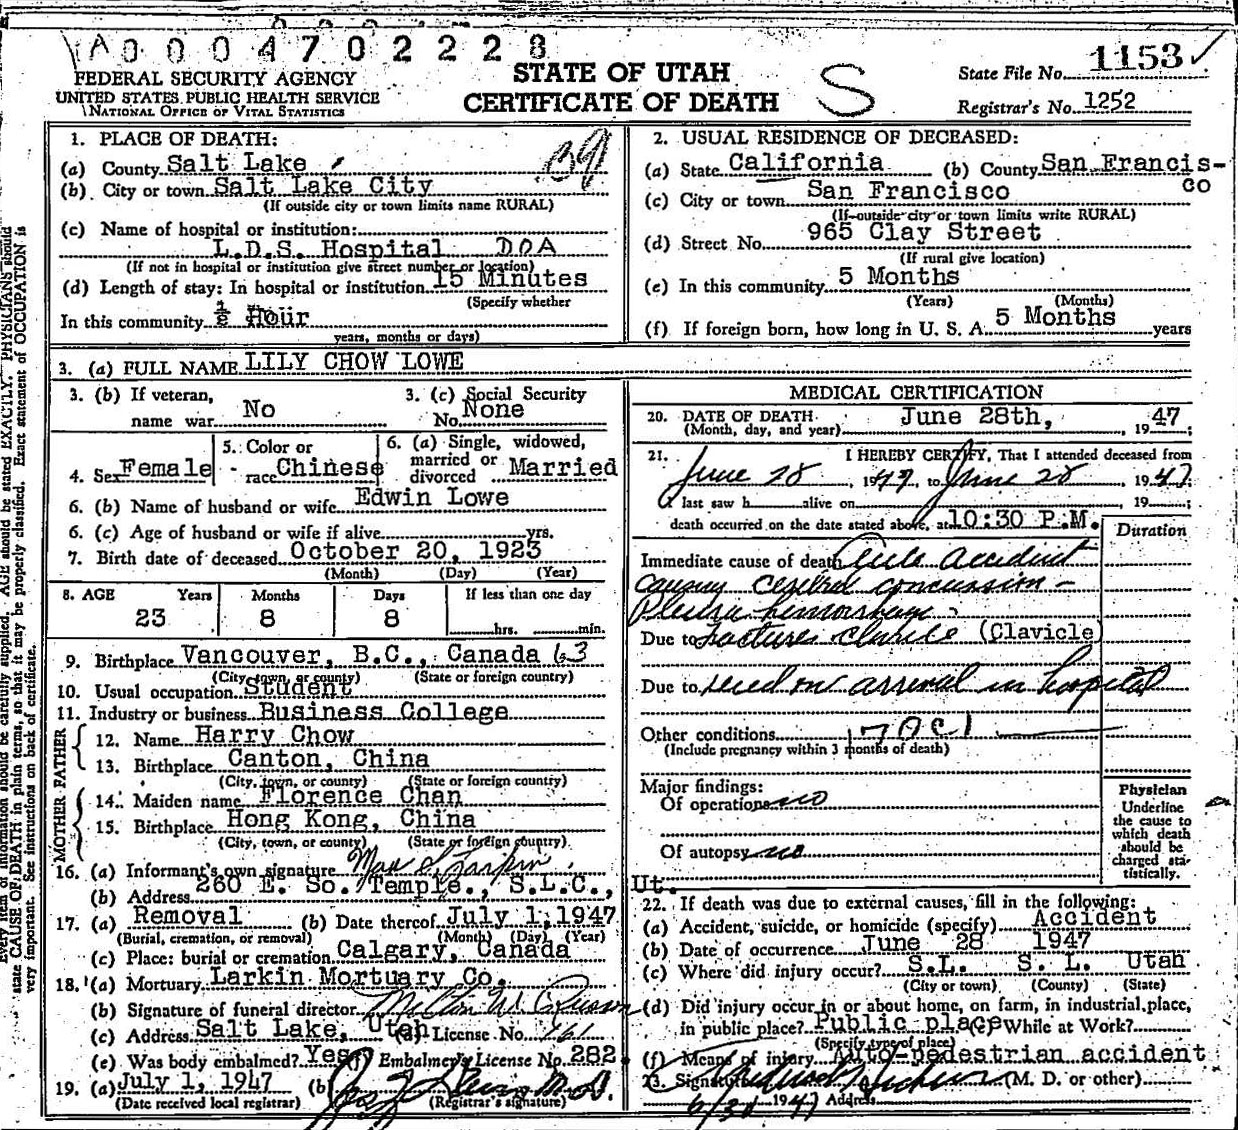 A0004702228
FEDERAL SECURITY AGENCY
UNITED STATES PUBLIC HEALTH SERVICE
NATIONAL OFFICE OF VITAL STATISTICS
STATE OF UTAH
CERTIFICATE OF DEATH
S
State File No. 1153 ✓
Registrar's No. 1252
1. PLACE OF DEATH:
(a) County Salt Lake
(b) City or town Salt Lake City
(If outside city or town limits name RURAL)
(c) Name of hospital or institution:
L.D.S. Hospital DOA
(If not in hospital or institution give street number or location)
(d) Length of stay: In hospital or institution 15 Minutes
(Specify whether
In this community ½ Hour
years, months or days)
2. USUAL RESIDENCE OF DECEASED:
(a) State California (b) County San Francis-
co
(c) City or town San Francisco
(If outside city or town limits write RURAL)
(d) Street No. 965 Clay Street
(If rural give location)
(e) In this community 5 Months
(Years) (Months)
(f) If foreign born, how long in U. S. A. 5 Months years
3. (a) FULL NAME LILY CHOW LOWE
3. (b) If veteran, name war No
3. (c) Social Security No. None
4. Sex Female
5. Color or race Chinese
6. (a) Single, widowed, married or divorced Married
6. (b) Name of husband or wife Edwin Lowe
6. (c) Age of husband or wife if alive yrs.
7. Birth date of deceased October 20, 1923
(Month) (Day) (Year)
8. AGE Years Months Days If less than one day
23 8 8 hrs. min.
9. Birthplace Vancouver, B.C., Canada 63
(City, town, or county) (State or foreign country)
10. Usual occupation Student
11. Industry or business Business College
FATHER
12. Name Harry Chow
13. Birthplace Canton, China
(City, town, or county) (State or foreign country)
MOTHER
14. Maiden name Florence Chan
15. Birthplace Hong Kong, China
(City, town, or county) (State or foreign country)
16. (a) Informant's own signature
(b) Address 260 E. So. Temple., S.L.C., Ut.
17. (a) Removal (b) Date thereof July 1, 1947
(Burial, cremation, or removal) (Month) (Day) (Year)
(c) Place: burial or cremation Calgary, Canada
18. (a) Mortuary Larkin Mortuary Co.
(b) Signature of funeral director
(c) Address Salt Lake, Utah License No. 161
(e) Was body embalmed? Yes (f) Embalmer's License No. 282
19. (a) July 1, 1947 (b)
(Date received local registrar) (Registrar's signature)
MEDICAL CERTIFICATION
20. DATE OF DEATH June 28th, 1947;
(Month, day, and year)
21. I HEREBY CERTIFY, That I attended deceased from
June 28, 1947, to June 28, 1947
I last saw h alive on , 19 ;
death occurred on the date stated above, at 10:30 P.M.
Duration
Immediate cause of death Auto accident
causing cerebral concussion -
Pleura hemorrhage
Due to fractures clavicle (Clavicle)
Due to dead on arrival in hospital
Other conditions 170C1
(Include pregnancy within 3 months of death)
Major findings:
Of operations no
Of autopsy no
Physician
Underline
the cause to
which death
should be
charged sta-
tistically.
22. If death was due to external causes, fill in the following:
(a) Accident, suicide, or homicide (specify) Accident
(b) Date of occurrence June 28 1947
(c) Where did injury occur? S.L. S. L. Utah
(City or town) (County) (State)
(d) Did injury occur in or about home, on farm, in industrial place,
in public place? Public place (e) While at Work?
(Specify type of place)
(f) Means of injury Auto-pedestrian accident
23. Signature (M. D. or other)
6/30 1947 Address
Every item of information should be carefully supplied. AGE should be stated EXACTLY. PHYSICIANS should
state CAUSE OF DEATH in plain terms, so that it may be properly classified. Exact statement of OCCUPATION is
very important. See instructions on back of certificate.